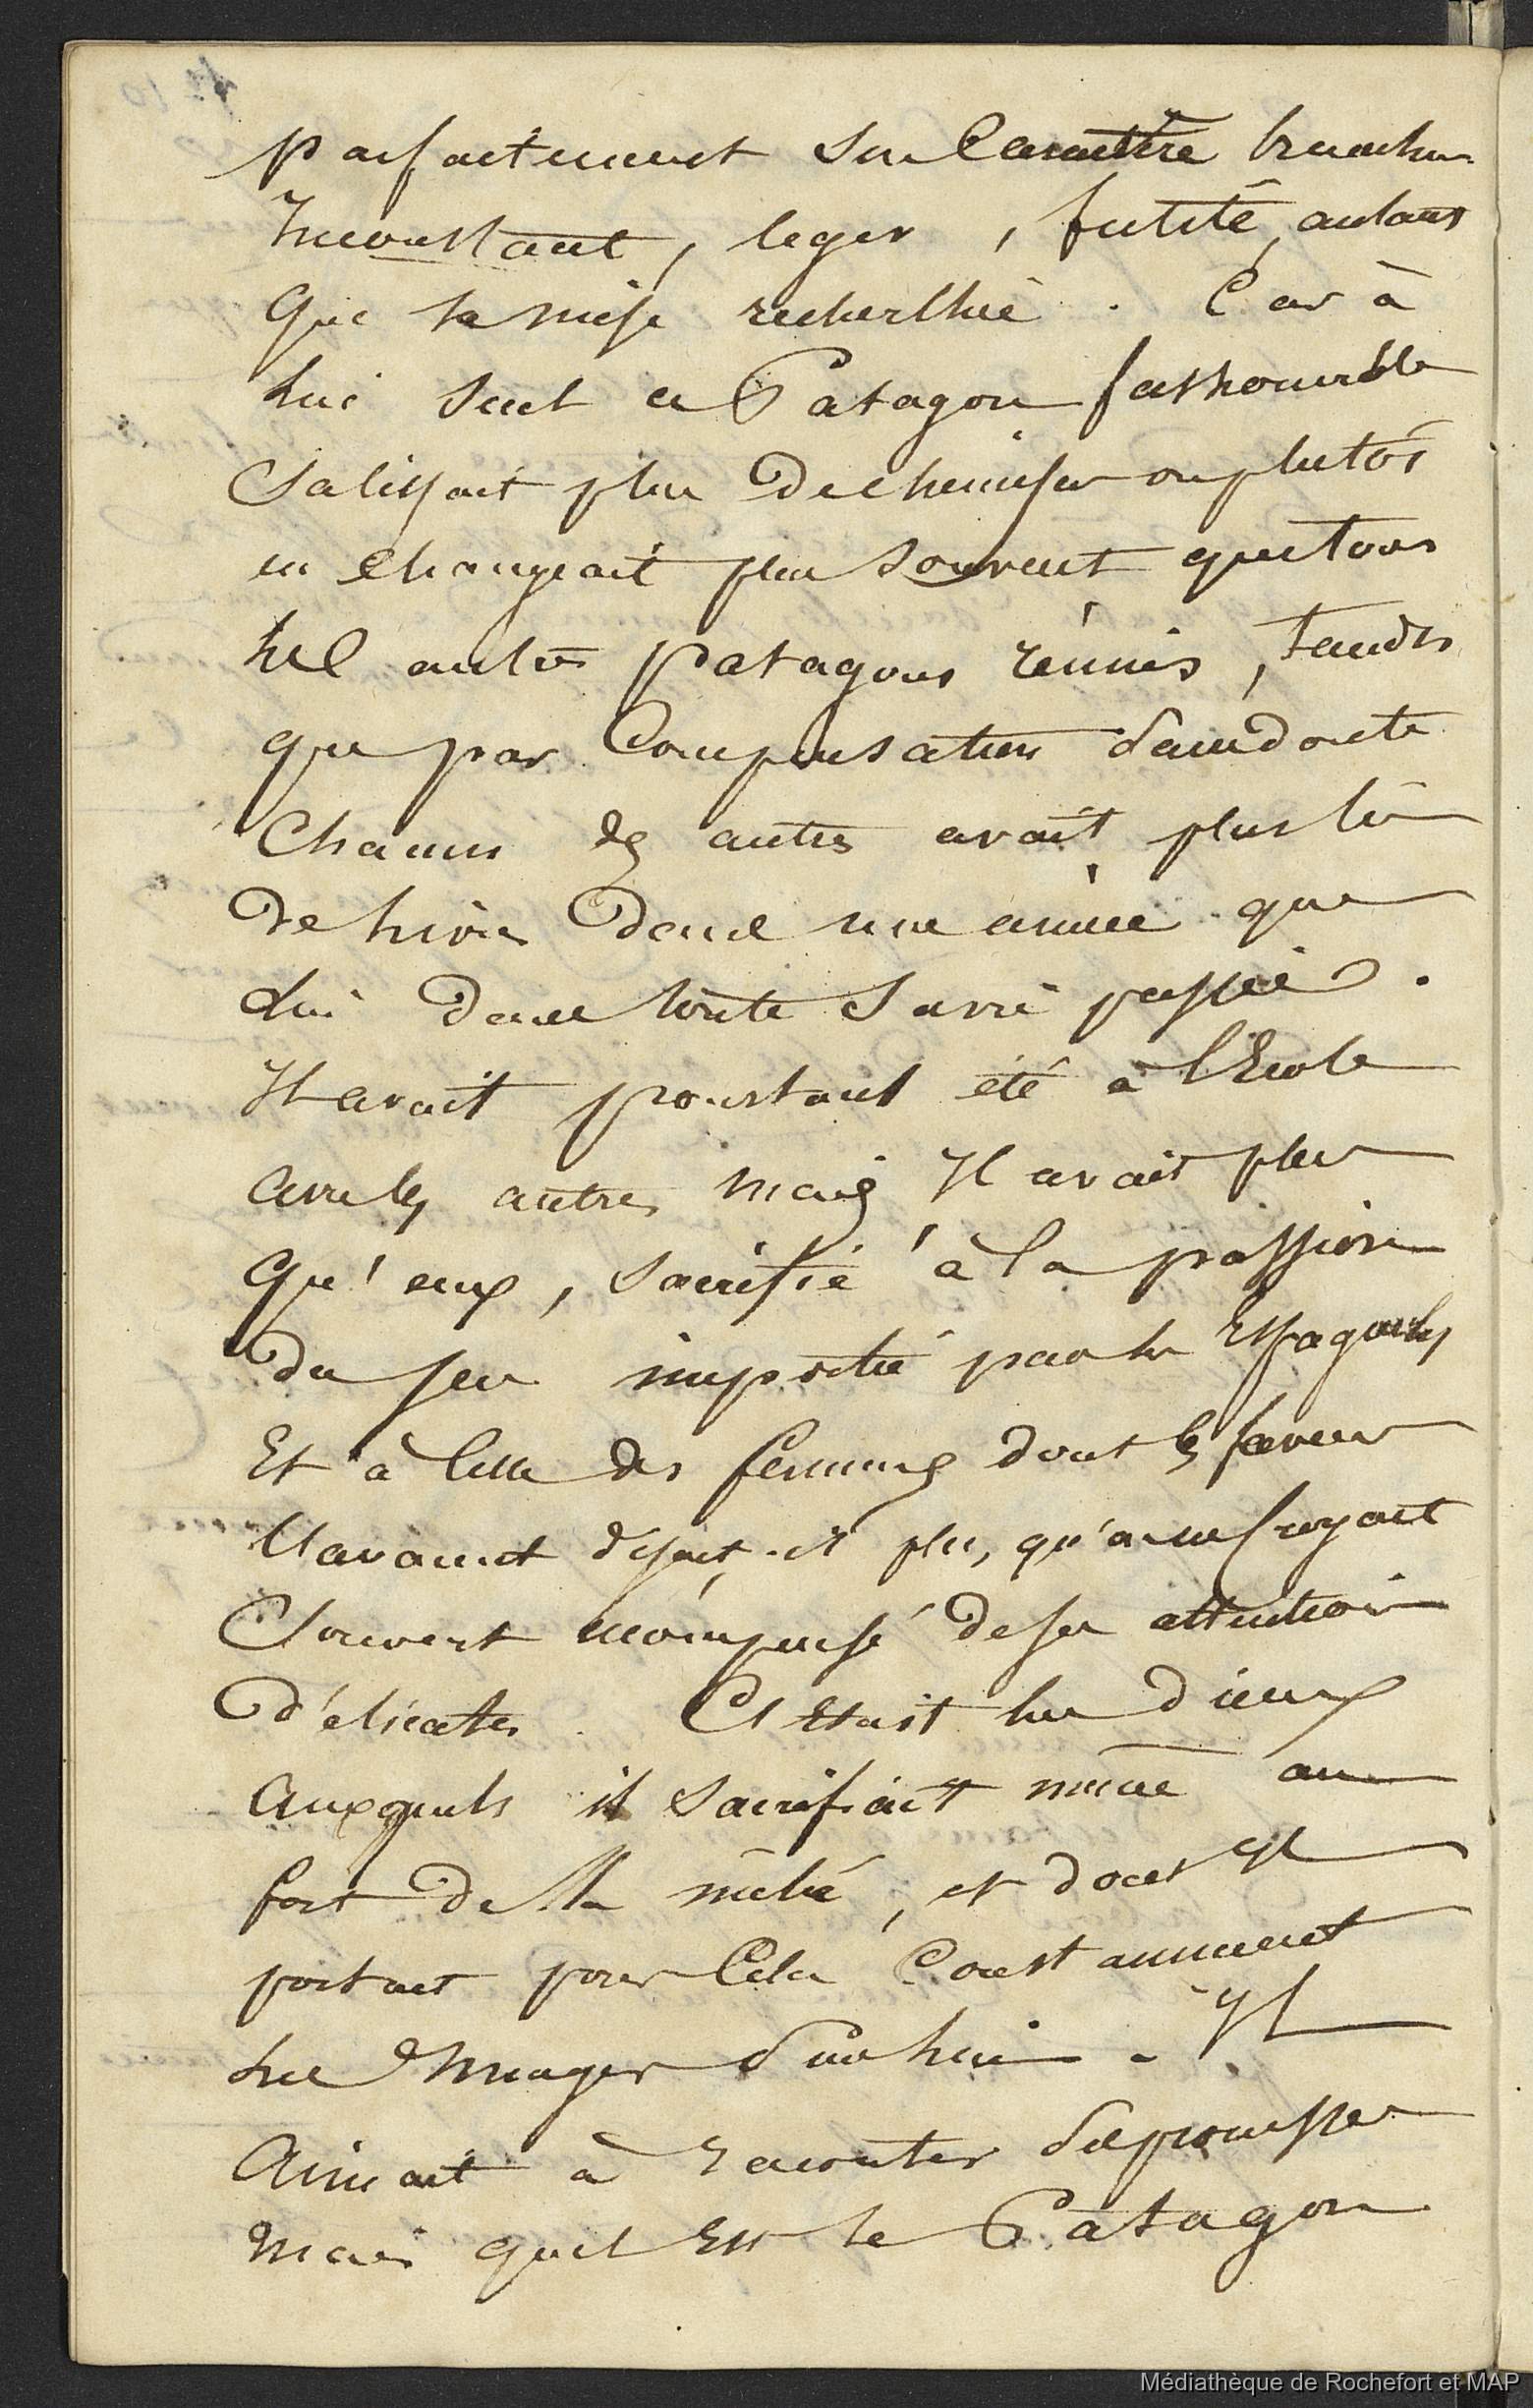 parfaitement son Caractère
Inconstant, leger, futile, autant
que sa mise recherchée. Car à
lui seul ce Patagon fashionable
Salissait plus De chemises ou plutôt
en changeait plus souvent que tous
les autres patagons réunis, tandis
que par Compensation sans doute
Chacun des autres avait plus lu
De livres Dans une année que
lui Dans toute sa vie passée.
Il avait pourtant été à l'Ecole
avec les autres mais Il avait plus
qu'eux, sacrifié à la passion
Du jeu importé par les Espagnols
Et à Celle des femmes dont les faveurs
l'avaient disait-il plu, qu'à
Souvent récompensé De ses attentions
Délicates. C'Etait les Dieux
auxquels il sacrifiait même au
fort De la mêlée, et dont il
portait pour Cela Constamment
les Images sur lui. Il
Aimait à raconter ses prouesses
mais quel Est le Patagon
Médiathèque de Rochefort et MAP